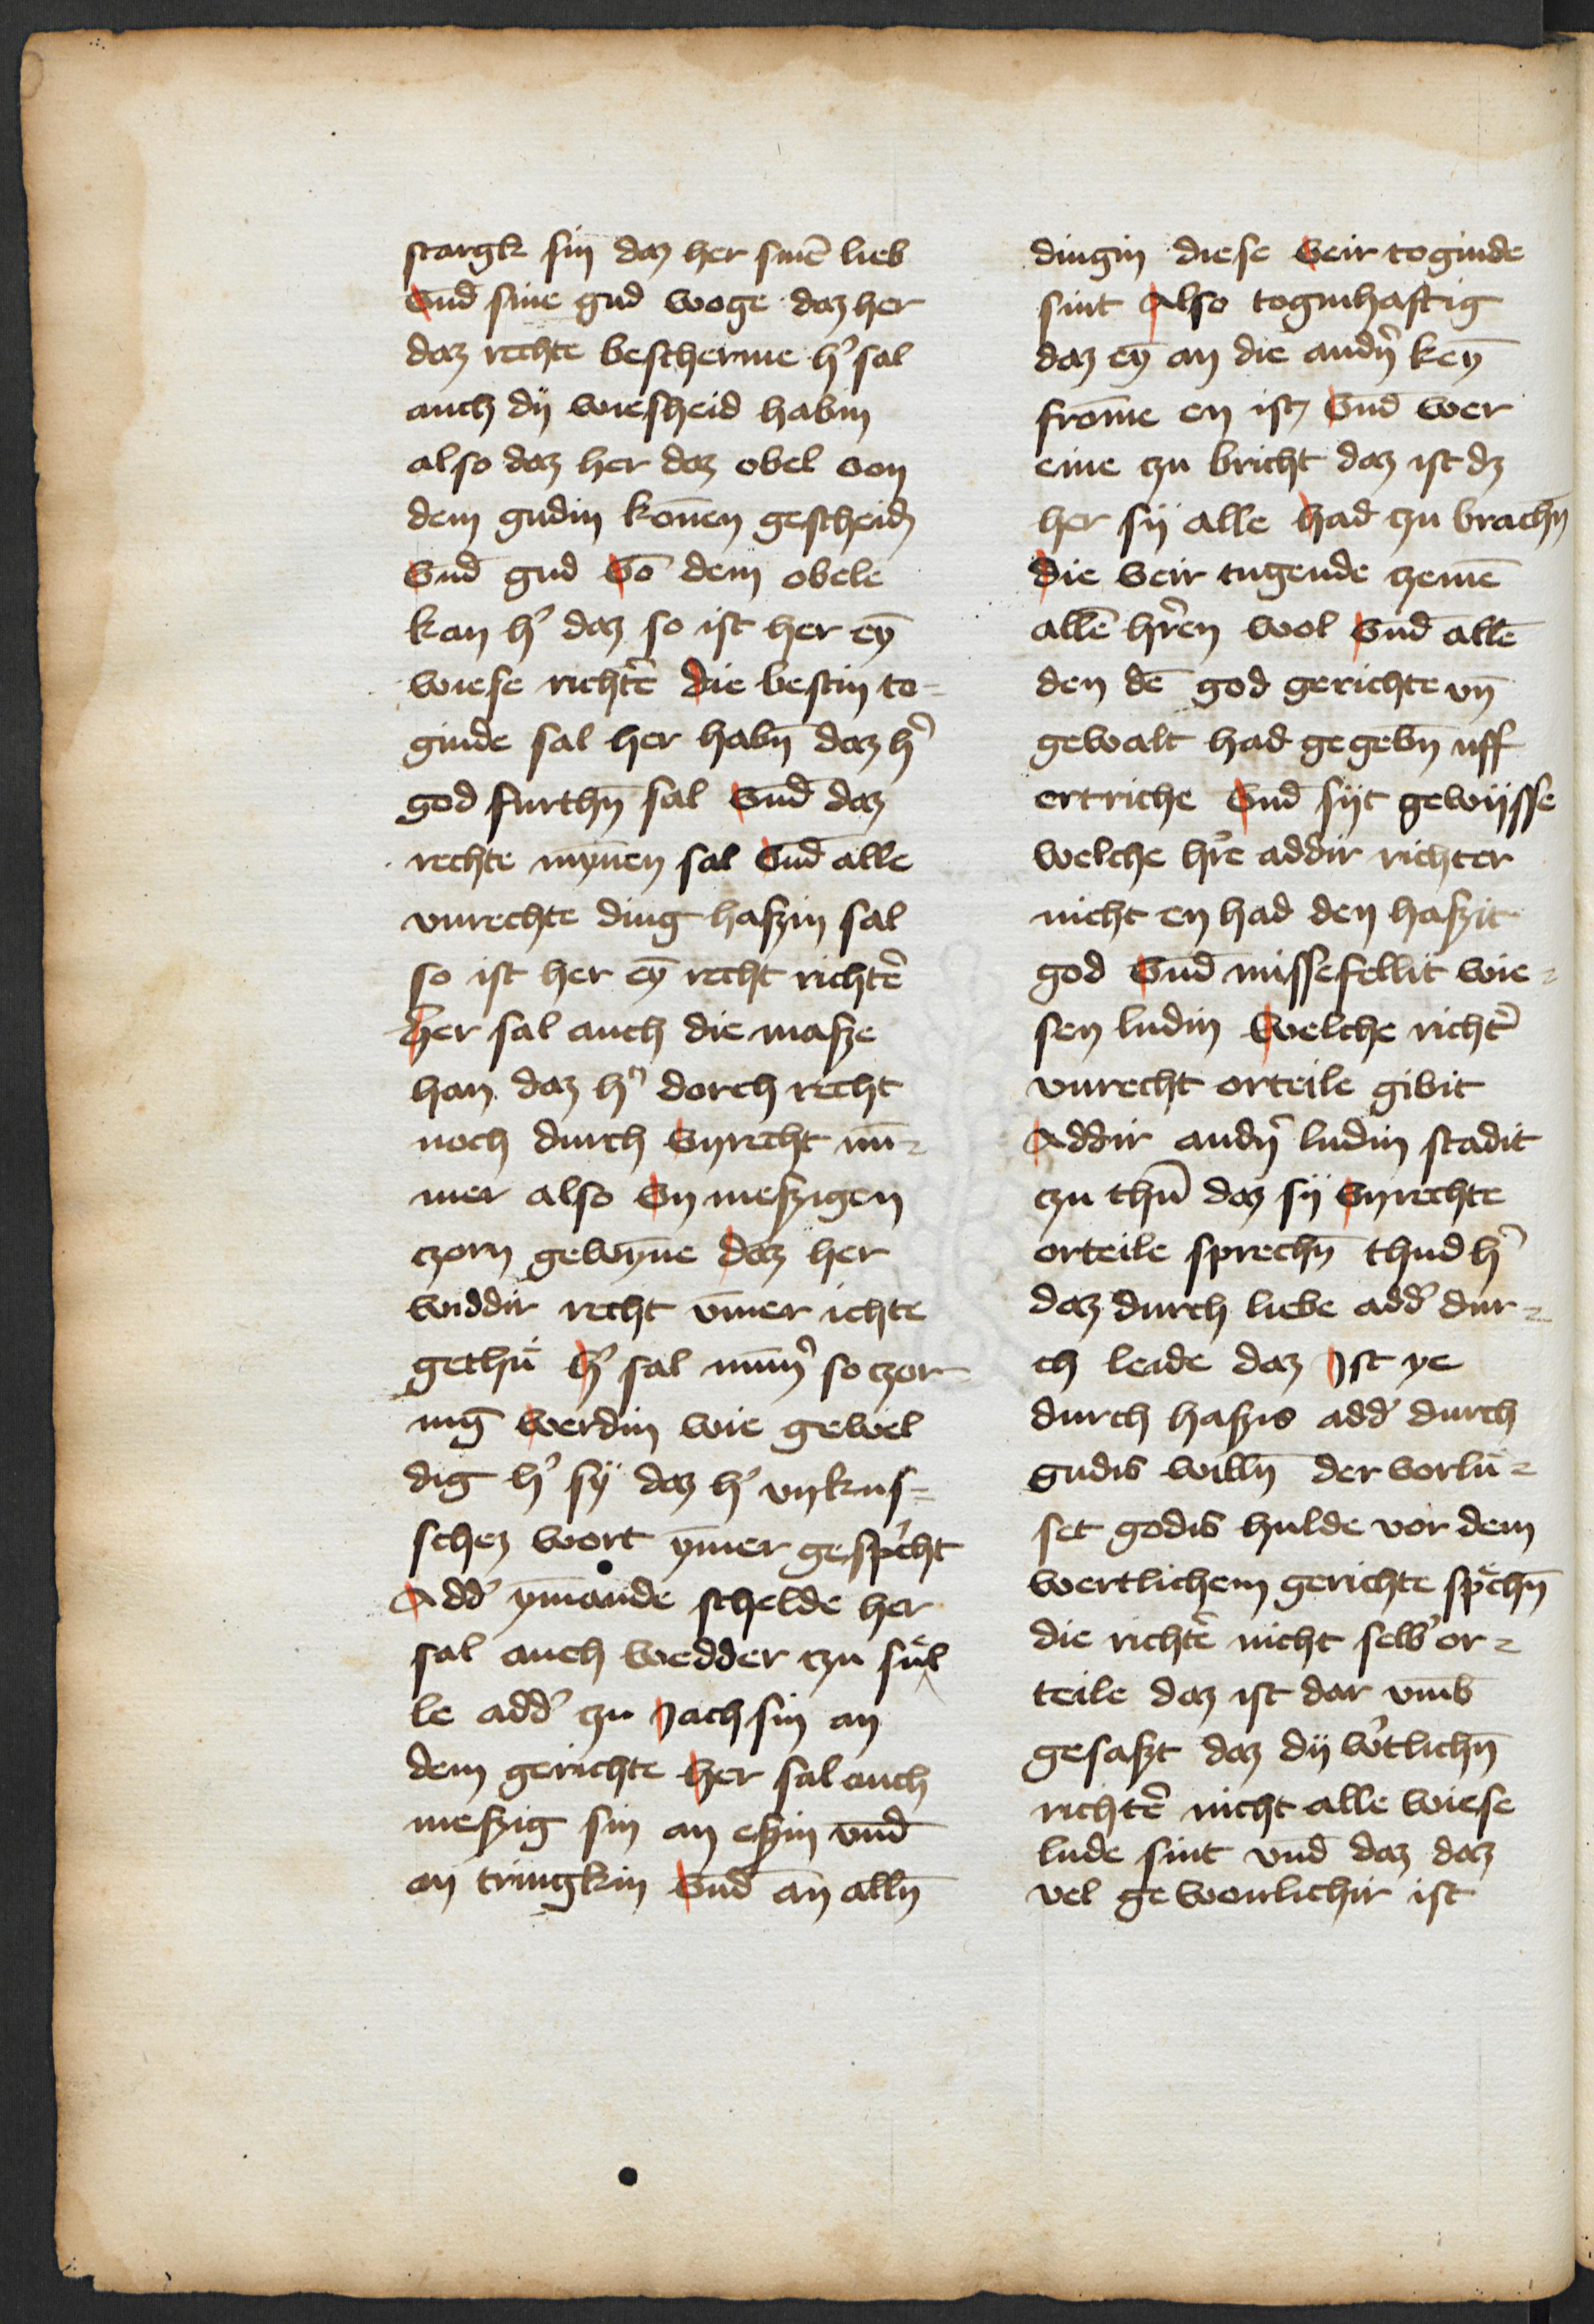 stargk sin daz her sinē lieb
Vnd̄ sine gud woge daz her
daz rechte bescherme h' sal
auch dÿ wiesheid habin
also daz her daz obel von
dem gudin kōnen gescheid
Vnd̄ gud Vō dem obele
kan h' daz so ist her eȳ
wiese richt'e die bestin to=
ginde sal her habn̄ daz h'
god furthn̄ sal Vnd̄ daz
rechte mȳnen sal Vnd̄ alle
vnrechte ding haszin sal
so ist her eȳ recht richt'e
her sal auch die masze
han daz h' dorch recht
noch durch Vnrecht nū=
mer also Vn meszigen
czorn gewȳne daz her
widdir recht v̄mer ichte
gethů h' sal nūm' so czor
nīg werdin wie gewel
dig h' sÿ daz h' vnkus=
schez wort ȳmer gesp'cht
Add' ȳmande schelde her
sal auch wedder czu snel
le add' czu Jach sin an
dem gerichte her sal auch
meszig sin an eszin vnd̄
an tringkin Vnd̄ an alln̄
dingin diese Veir toginde
sint Also toginhaftig
daz eȳ an die andn̄' keȳ
frōme en ist Vnd̄ wer
eine czu bricht daz ist dz
her sÿ alle had czu brachn̄
die Veir tugende czemē
allē hr'en wol Vnd̄ allē
den dē god gerichte vn̄
gewalt had gegebn̄ uff
ertriche Vnd̄ sÿt gewÿsse
welche hr'e addir richter
nicht en had den haszit
god Vnd̄ missefellit wie=
sen ludin welche richt'
vnrecht orteile gibit
Addir andn̄' ludin stadit
czu thuē daz sÿ Vnrechte
orteile sprechn̄ thud h'
daz durch liebe add' dur=
ch leide daz Jst ye
durch haszis add' durch
gudis willn̄ der vorlu=
set godis hulde vor dem
wertlichem gerichte sp'echn̄
die richt'e nicht selb' or=
teile daz ist dar vm̄b
gesaszt daz dÿ w'tlichn̄
richt'e nicht alle wiese
lude sint vnd̄ daz daz
vel gewonlichir ist